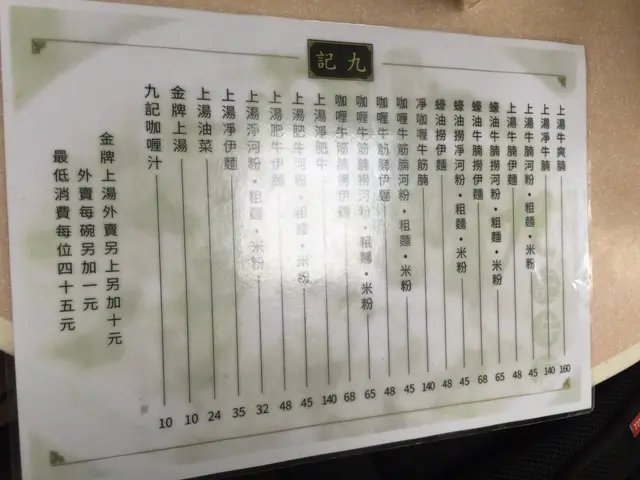 九記
上湯牛爽腩 160
上湯淨牛腩 140
上湯牛腩河粉・粗麵・米粉 45
上湯牛腩伊麵 48
蠔油牛腩撈河粉・粗麵・米粉 65
蠔油牛腩撈伊麵 68
蠔油撈淨河粉・粗麵・米粉 45
蠔油撈伊麵 48
淨咖喱牛筋腩 140
咖喱牛筋腩河粉・粗麵・米粉 45
咖喱牛筋腩伊麵 48
咖喱牛筋腩撈河粉・粗麵・米粉 65
咖喱牛筋腩撈伊麵 68
上湯淨肥牛 140
上湯肥牛河粉・粗麵・米粉 45
上湯肥牛伊麵 48
上湯淨河粉・粗麵・米粉 32
上湯淨伊麵 35
上湯油菜 24
金牌上湯 10
九記咖喱汁 10
金牌上湯外賣另上另加十元
外賣每碗另加一元
最低消費每位四十五元